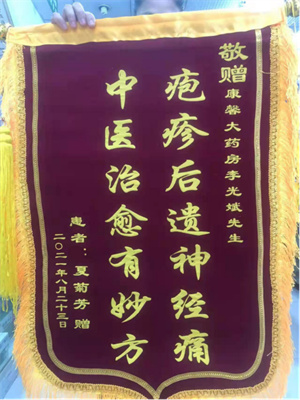 敬赠
康馨大药房李光斌先生
疱疹后遗神经痛
中医治愈有妙方
患者：夏菊芳赠
二〇二一年八月二十三日